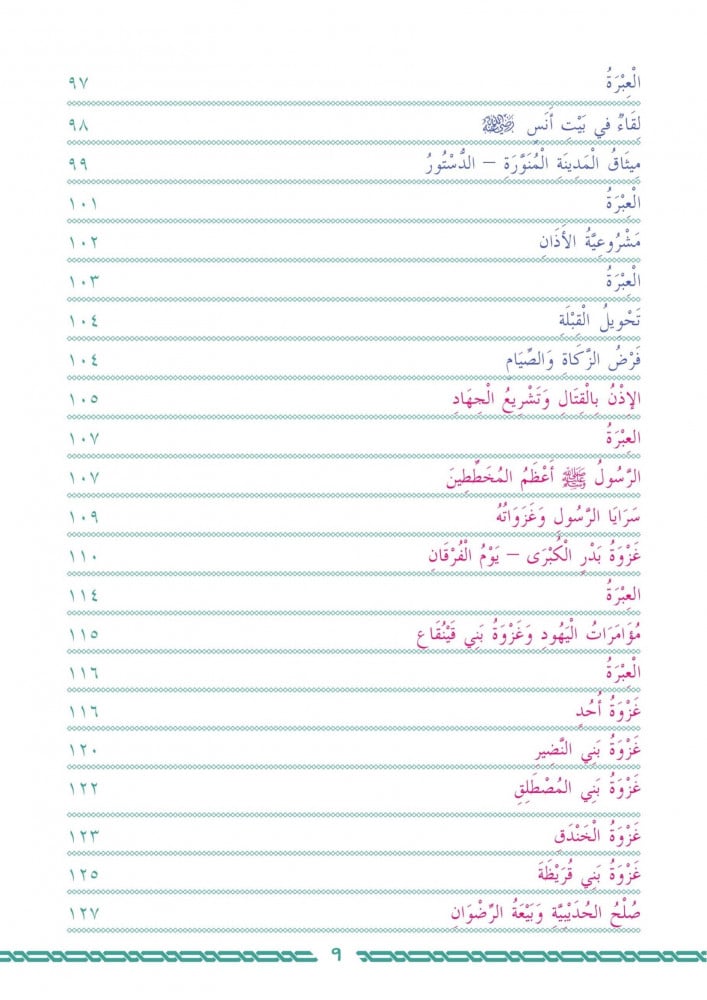 الْعِبْرَةُ ٩٧
لِقَاءٌ في بَيْتِ أَنَسٍ رَضِيَ اللهُ عَنْهُ ٩٨
مِيثَاقُ الْمَدِينَةِ الْمُنَوَّرَةِ – الدُّسْتُورُ ٩٩
الْعِبْرَةُ ١٠١
مَشْرُوعِيَّةُ الأَذَانِ ١٠٢
الْعِبْرَةُ ١٠٣
تَحْوِيلُ الْقِبْلَةِ ١٠٤
فَرْضُ الزَّكَاةِ وَالصِّيَامِ ١٠٤
الإِذْنُ بِالْقِتَالِ وَتَشْرِيعُ الْجِهَادِ ١٠٥
العِبْرَةُ ١٠٧
الرَّسُولُ ﷺ أَعْظَمُ المُخَطِّطِينَ ١٠٧
سَرَايَا الرَّسُولِ وَغَزَوَاتُهُ ١٠٩
غَزْوَةُ بَدْرٍ الْكُبْرَى – يَوْمُ الْفُرْقَانِ ١١٠
العِبْرَةُ ١١٤
مُؤَامَرَاتُ الْيَهُودِ وَغَزْوَةُ بَنِي قَيْنُقَاع ١١٥
الْعِبْرَةُ ١١٦
غَزْوَةُ أُحُدٍ ١١٦
غَزْوَةُ بَنِي النَّضِيرِ ١٢٠
غَزْوَةُ بَنِي المُصْطَلِقِ ١٢٢
غَزْوَةُ الْخَنْدَقِ ١٢٣
غَزْوَةُ بَنِي قُرَيْظَةَ ١٢٥
صُلْحُ الحُدَيْبِيَّةِ وَبَيْعَةُ الرِّضْوَانِ ١٢٧
٩